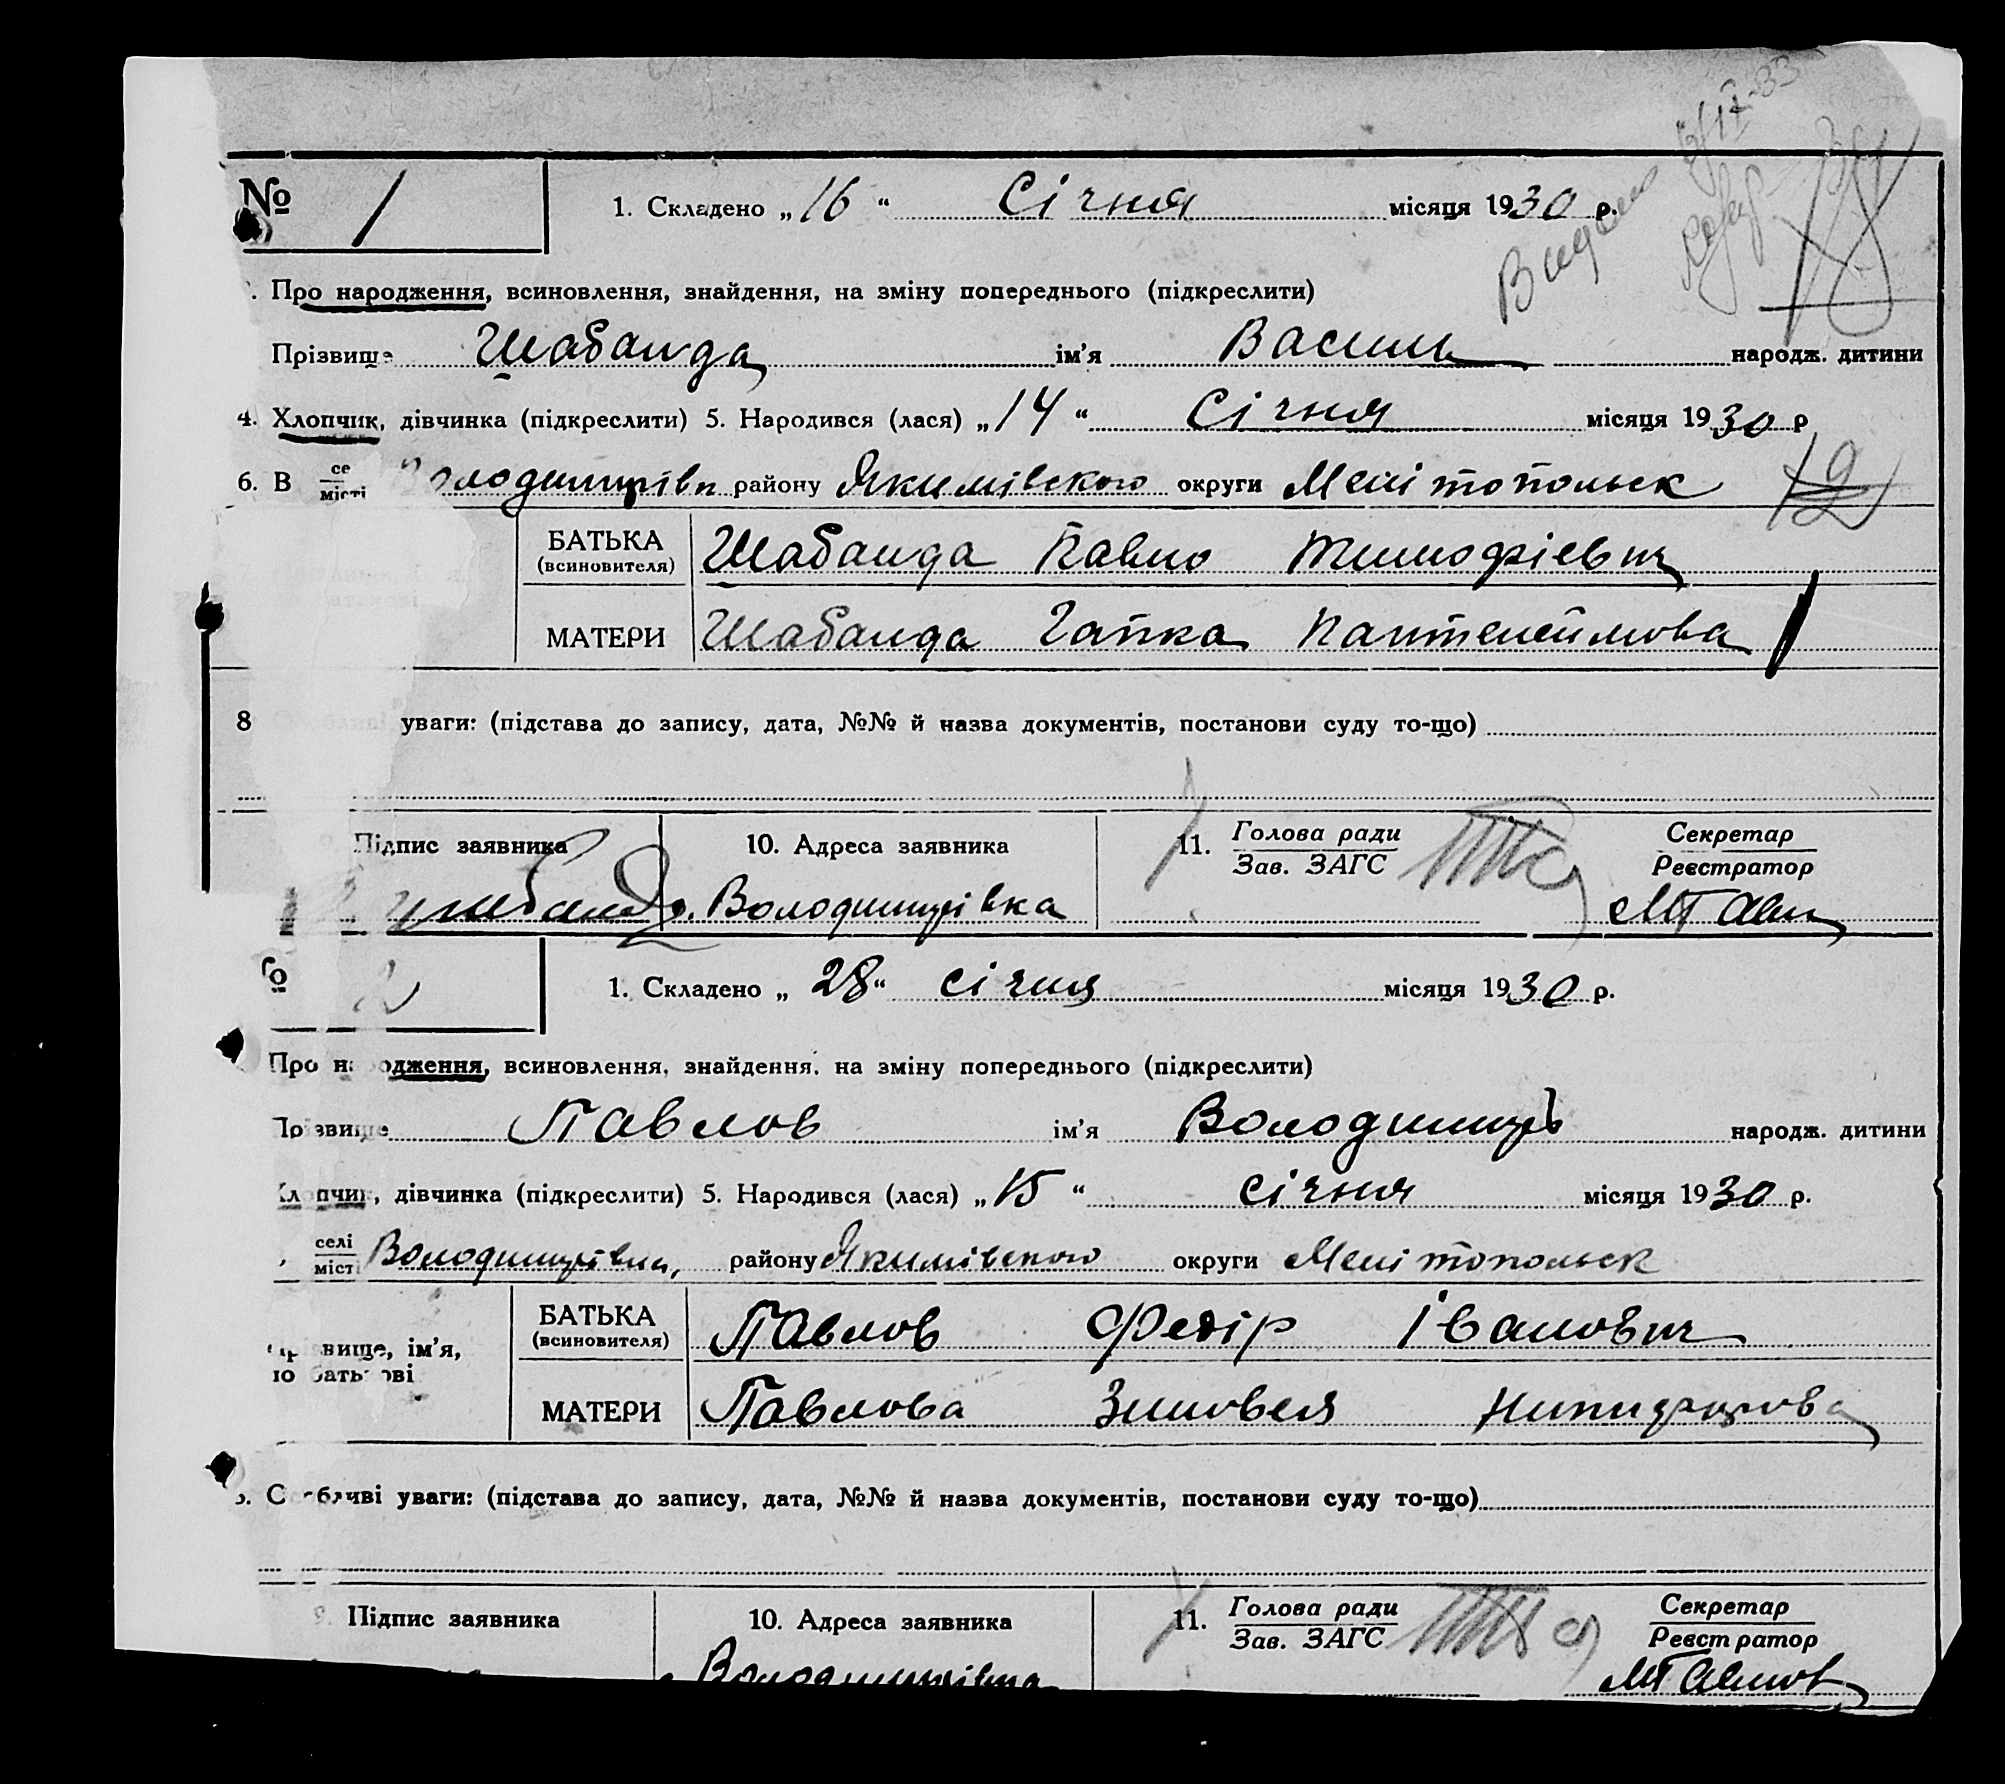 № 1
1. Складено „16“ Січня місяця 1930 р.
Про народження, всиновлення, знайдення, на зміну попереднього (підкреслити)
Прізвище Шабанда ім’я Василь народж. дитини
4. Хлопчик, дівчинка (підкреслити) 5. Народився (лася) „14“ Січня місяця 1930 р
6. В се місті Володимирівц району Якимівского округи Мелітопольск
БАТЬКА Шабанда Павло Тимофієвич
(всиновителя)
МАТЕРИ Шабанда Гапка Пантелеймова
8 уваги: (підстава до запису, дата, №№ й назва документів, постанови суду то-що)
Підпис заявника 10. Адреса заявника 11. Голова ради Секретар
Зав. ЗАГС Реєстратор
Володимирівка
1. Складено „28“ січня місяця 1930 р.
Про народження, всиновлення, знайдення, на зміну попереднього (підкреслити)
Прізвище Павлов ім’я Володимир народж. дитини
Хлопчик, дівчинка (підкреслити) 5. Народився (лася) „15“ січня місяця 1930 р.
селі місті Володимирівка, району Якимівского округи Мелітопольск
БАТЬКА Павлов Федір Іванович
(всиновителя)
вище, ім’я,
МАТЕРИ Павлова Зиновея Никифирова
Особливі уваги: (підстава до запису, дата, №№ й назва документів, постанови суду то-що)
9. Підпис заявника 10. Адреса заявника 11. Голова ради Секретар
Зав. ЗАГС Реєстратор
Володимирівка МПавлов